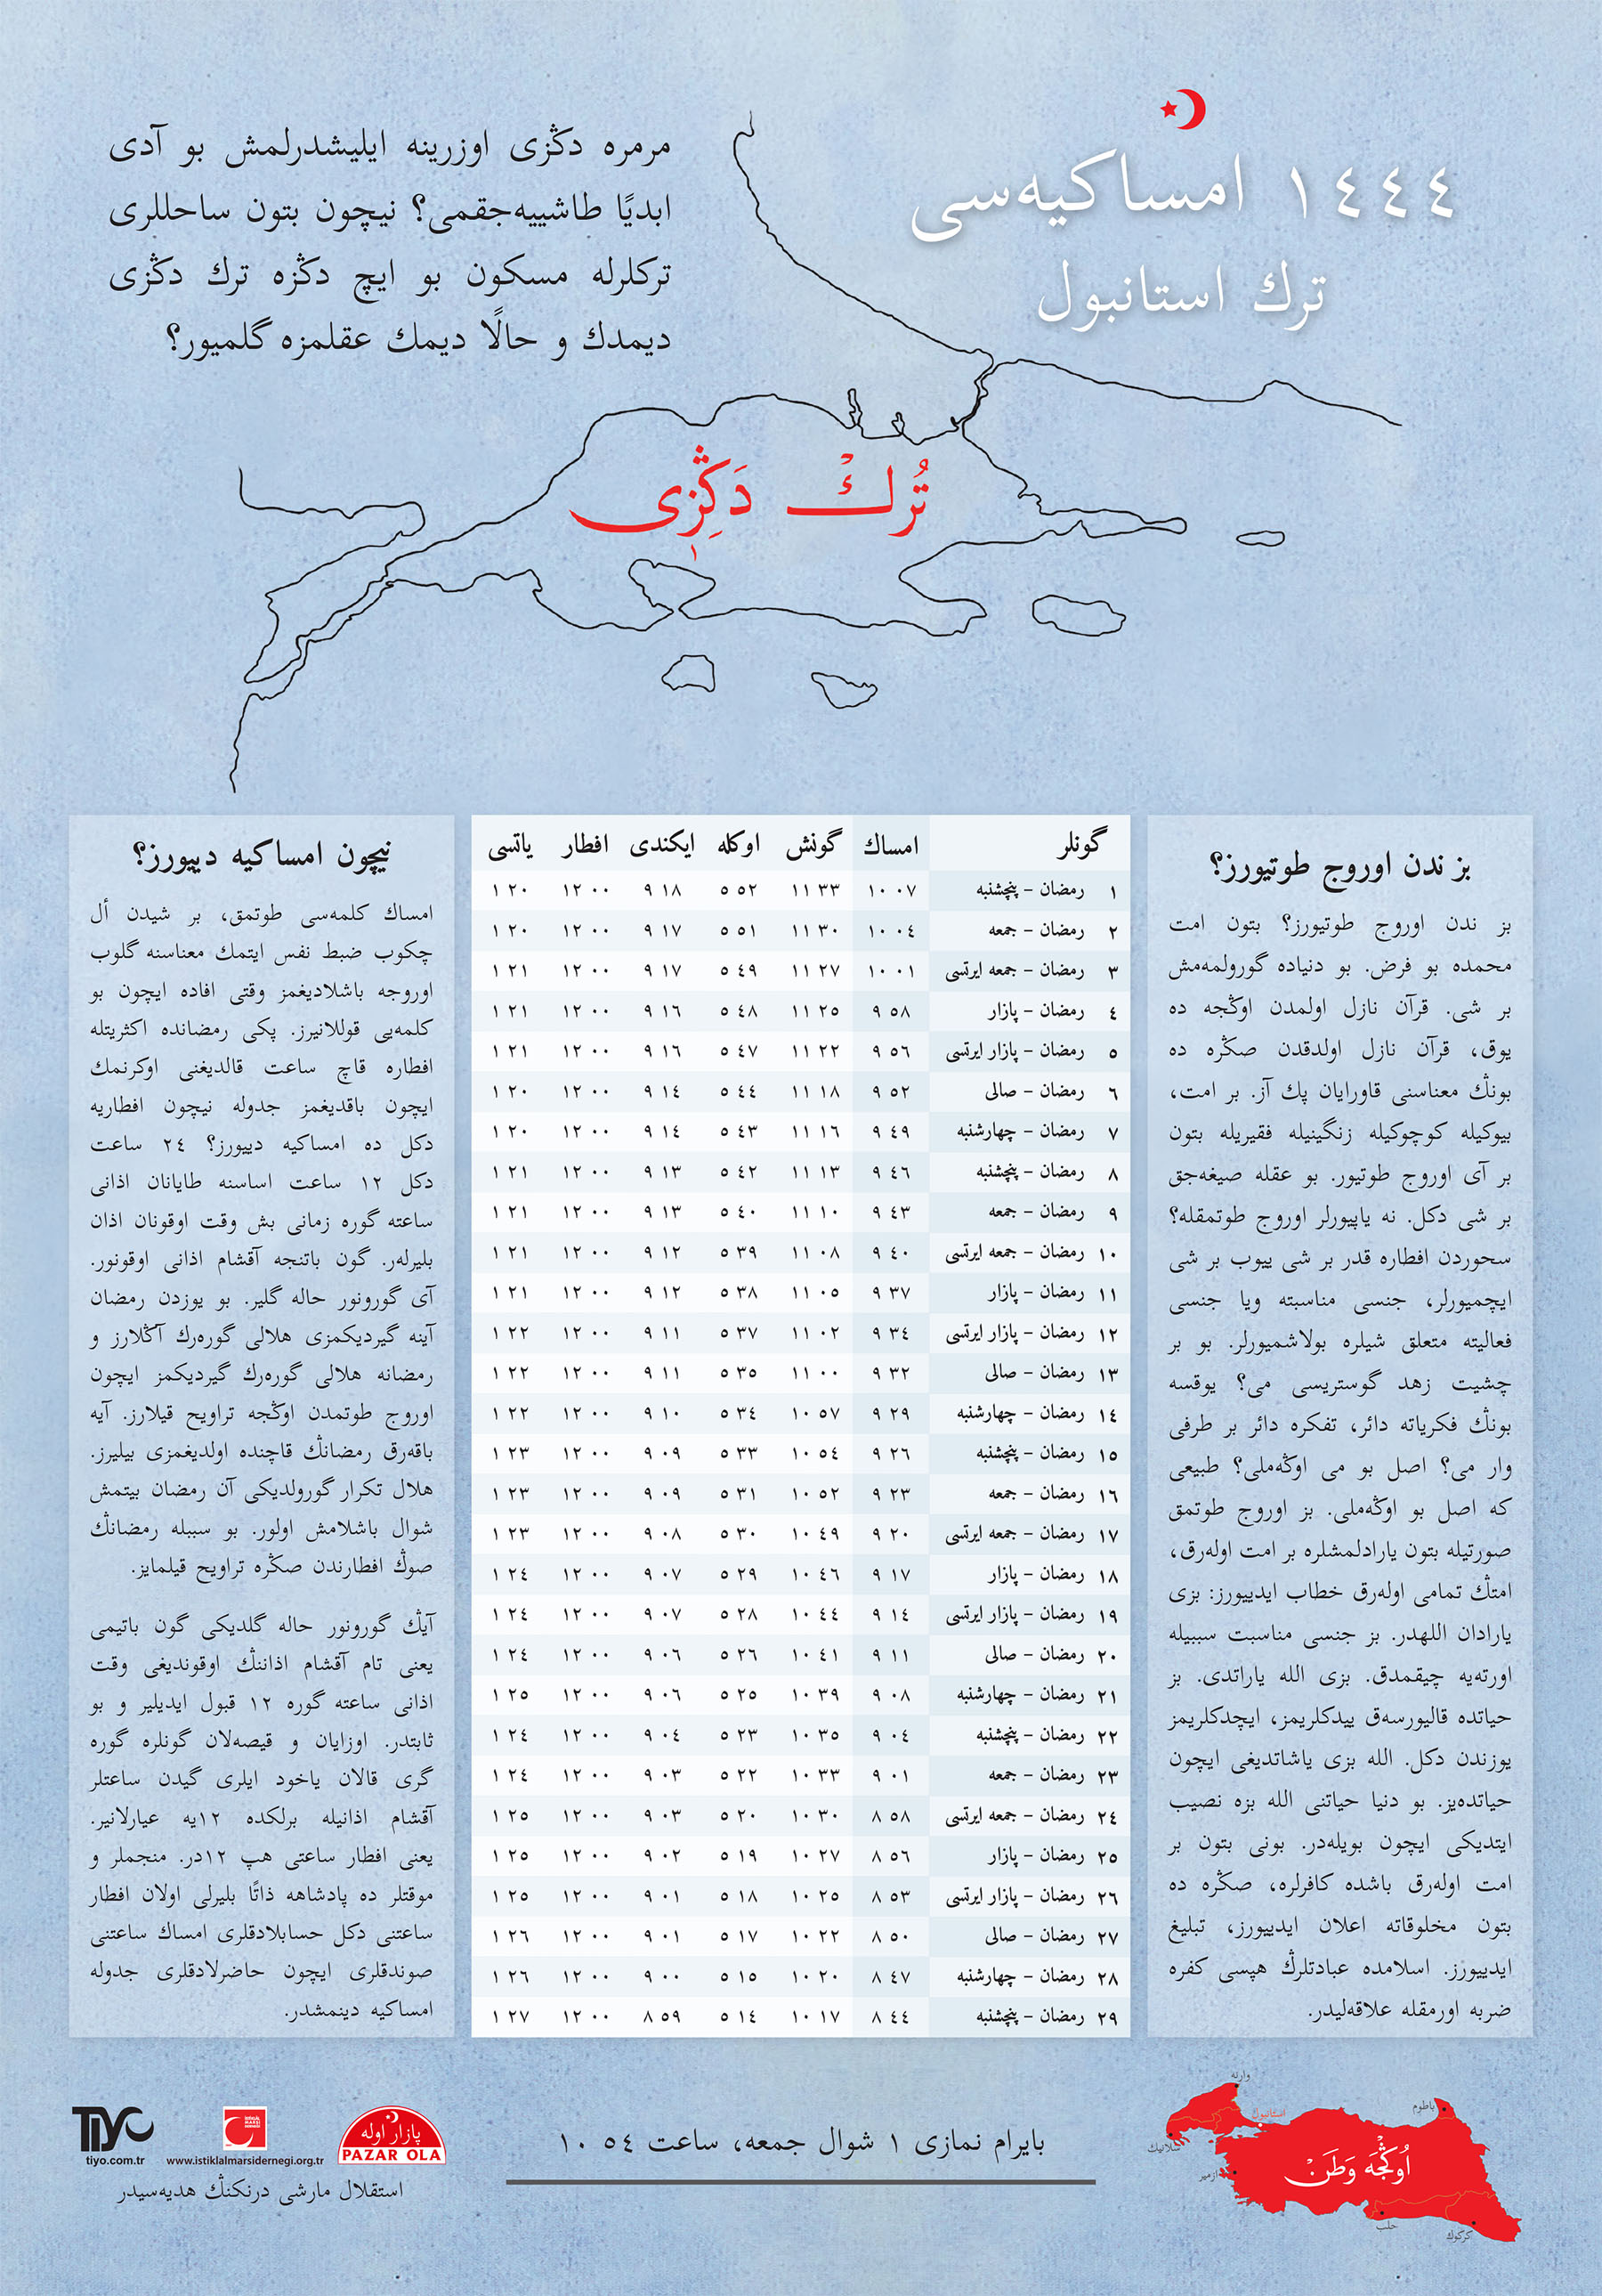 ١٤٤٤ امساكيه‌سی
ترك استانبول
مرمره دڭزی اوزرينه ايليشدرلمش بو آدی
ابديًا طاشييه‌جقمی؟ نيچون بتون ساحللری
تركلرله مسكون بو ايچ دڭزه ترك دڭزی
ديمدك و حالًا ديمك عقلمزه گلميور؟
تُرك دَڭِزِی
بز ندن اوروج طوتيورز؟
بز ندن اوروج طوتيورز؟ بتون امت
محمده بو فرض. بو دنياده گورولمه‌مش
بر شی. قرآن نازل اولمدن اوڭجه ده
يوق، قرآن نازل اولدقدن صڭره ده
بونڭ معناسنی قاورايان پك آز. بر امت،
بيوكيله كوچوكيله زنگينيله فقيريله بتون
بر آی اوروج طوتيور. بو عقله صيغه‌جق
بر شی دكل. نه ياپيورلر اوروج طوتمقله؟
سحوردن افطاره قدر بر شی ييوب بر شی
ايچميورلر، جنسی مناسبته ويا جنسی
فعاليته متعلق شيلره بولاشميورلر. بو بر
چشيت زهد گوستريسی می؟ يوقسه
بونڭ فكرياته دائر، تفكره دائر بر طرفی
وار می؟ اصل بو می اوڭه‌ملی؟ طبيعی
كه اصل بو اوڭه‌ملی. بز اوروج طوتمق
صورتيله بتون يارادلمشلره بر امت اوله‌رق،
امتڭ تمامی اوله‌رق خطاب ايدييورز: بزی
يارادان اللهدر. بز جنسی مناسبت سببيله
اورته‌يه چيقمدق. بزی الله ياراتدی. بز
حياتده قاليورسه‌ق ييدكلريمز، ايچدكلريمز
يوزندن دكل. الله بزی ياشاتديغی ايچون
حياتده‌يز. بو دنيا حياتنی الله بزه نصيب
ايتديكی ايچون بويله‌در. بونی بتون بر
امت اوله‌رق باشده كافرلره، صڭره ده
بتون مخلوقاته اعلان ايدييورز، تبليغ
ايدييورز. اسلامده عبادتلرڭ هپسی كفره
ضربه اورمقله علاقه‌ليدر.
گونلر امساك گونش اوكله ايكندی افطار ياتسی
١ رمضان – پنچشنبه ١٠ ٠٧ ١١ ٣٣ ٥ ٥٢ ٩ ١٨ ١٢ ٠٠ ١ ٢٠
٢ رمضان – جمعه ١٠ ٠٤ ١١ ٣٠ ٥ ٥١ ٩ ١٧ ١٢ ٠٠ ١ ٢٠
٣ رمضان – جمعه ايرتسی ١٠ ٠١ ١١ ٢٧ ٥ ٤٩ ٩ ١٧ ١٢ ٠٠ ١ ٢١
٤ رمضان – پازار ٩ ٥٨ ١١ ٢٥ ٥ ٤٨ ٩ ١٦ ١٢ ٠٠ ١ ٢١
٥ رمضان – پازار ايرتسی ٩ ٥٦ ١١ ٢٢ ٥ ٤٧ ٩ ١٦ ١٢ ٠٠ ١ ٢١
٦ رمضان – صالی ٩ ٥٢ ١١ ١٨ ٥ ٤٤ ٩ ١٤ ١٢ ٠٠ ١ ٢٠
٧ رمضان – چهارشنبه ٩ ٤٩ ١١ ١٦ ٥ ٤٣ ٩ ١٤ ١٢ ٠٠ ١ ٢٠
٨ رمضان – پنچشنبه ٩ ٤٦ ١١ ١٣ ٥ ٤٢ ٩ ١٣ ١٢ ٠٠ ١ ٢١
٩ رمضان – جمعه ٩ ٤٣ ١١ ١٠ ٥ ٤٠ ٩ ١٣ ١٢ ٠٠ ١ ٢١
١٠ رمضان – جمعه ايرتسی ٩ ٤٠ ١١ ٠٨ ٥ ٣٩ ٩ ١٢ ١٢ ٠٠ ١ ٢١
١١ رمضان – پازار ٩ ٣٧ ١١ ٠٥ ٥ ٣٨ ٩ ١٢ ١٢ ٠٠ ١ ٢١
١٢ رمضان – پازار ايرتسی ٩ ٣٤ ١١ ٠٢ ٥ ٣٧ ٩ ١١ ١٢ ٠٠ ١ ٢٢
١٣ رمضان – صالی ٩ ٣٢ ١١ ٠٠ ٥ ٣٥ ٩ ١١ ١٢ ٠٠ ١ ٢٢
١٤ رمضان – چهارشنبه ٩ ٢٩ ١٠ ٥٧ ٥ ٣٤ ٩ ١٠ ١٢ ٠٠ ١ ٢٢
١٥ رمضان – پنچشنبه ٩ ٢٦ ١٠ ٥٤ ٥ ٣٣ ٩ ٠٩ ١٢ ٠٠ ١ ٢٣
١٦ رمضان – جمعه ٩ ٢٣ ١٠ ٥٢ ٥ ٣١ ٩ ٠٩ ١٢ ٠٠ ١ ٢٣
١٧ رمضان – جمعه ايرتسی ٩ ٢٠ ١٠ ٤٩ ٥ ٣٠ ٩ ٠٨ ١٢ ٠٠ ١ ٢٣
١٨ رمضان – پازار ٩ ١٧ ١٠ ٤٦ ٥ ٢٩ ٩ ٠٧ ١٢ ٠٠ ١ ٢٤
١٩ رمضان – پازار ايرتسی ٩ ١٤ ١٠ ٤٤ ٥ ٢٨ ٩ ٠٧ ١٢ ٠٠ ١ ٢٤
٢٠ رمضان – صالی ٩ ١١ ١٠ ٤١ ٥ ٢٦ ٩ ٠٦ ١٢ ٠٠ ١ ٢٤
٢١ رمضان – چهارشنبه ٩ ٠٨ ١٠ ٣٩ ٥ ٢٥ ٩ ٠٦ ١٢ ٠٠ ١ ٢٥
٢٢ رمضان – پنچشنبه ٩ ٠٤ ١٠ ٣٥ ٥ ٢٣ ٩ ٠٤ ١٢ ٠٠ ١ ٢٤
٢٣ رمضان – جمعه ٩ ٠١ ١٠ ٣٣ ٥ ٢٢ ٩ ٠٣ ١٢ ٠٠ ١ ٢٤
٢٤ رمضان – جمعه ايرتسی ٨ ٥٨ ١٠ ٣٠ ٥ ٢٠ ٩ ٠٣ ١٢ ٠٠ ١ ٢٥
٢٥ رمضان – پازار ٨ ٥٦ ١٠ ٢٧ ٥ ١٩ ٩ ٠٢ ١٢ ٠٠ ١ ٢٥
٢٦ رمضان – پازار ايرتسی ٨ ٥٣ ١٠ ٢٥ ٥ ١٨ ٩ ٠١ ١٢ ٠٠ ١ ٢٥
٢٧ رمضان – صالی ٨ ٥٠ ١٠ ٢٢ ٥ ١٧ ٩ ٠١ ١٢ ٠٠ ١ ٢٦
٢٨ رمضان – چهارشنبه ٨ ٤٧ ١٠ ٢٠ ٥ ١٥ ٩ ٠٠ ١٢ ٠٠ ١ ٢٦
٢٩ رمضان – پنچشنبه ٨ ٤٤ ١٠ ١٧ ٥ ١٤ ٨ ٥٩ ١٢ ٠٠ ١ ٢٧
نيچون امساكيه دييورز؟
امساك كلمه‌سی طوتمق، بر شيدن أل
چكوب ضبط نفس ايتمك معناسنه گلوب
اوروجه باشلاديغمز وقتی افاده ايچون بو
كلمه‌يی قوللانيرز. پكی رمضانده اكثريتله
افطاره قاچ ساعت قالديغنی اوكرنمك
ايچون باقديغمز جدوله نيچون افطاريه
دكل ده امساكيه دييورز؟ ٢٤ ساعت
دكل ١٢ ساعت اساسنه طايانان اذانی
ساعته گوره زمانی بش وقت اوقونان اذان
بليرلەر. گون باتنجه آقشام اذانی اوقونور.
آی گورونور حاله گلير. بو يوزدن رمضان
آينه گيرديكمزی هلالی گوره‌رك آڭلارز و
رمضانه هلالی گوره‌رك گيرديكمز ايچون
اوروج طوتمدن اوڭجه تراويح قيلارز. آيه
باقه‌رق رمضانڭ قاچنده اولديغمزی بيليرز.
هلال تكرار گورولديكی آن رمضان بيتمش
شوال باشلامش اولور. بو سببله رمضانڭ
صوڭ افطارندن صڭره تراويح قيلمايز.
آيڭ گورونور حاله گلديكی گون باتيمی
يعنی تام آقشام اذاننڭ اوقونديغی وقت
اذانی ساعته گوره ١٢ قبول ايديلير و بو
ثابتدر. اوزايان و قيصه‌لان گونلره گوره
گری قالان ياخود ايلری گيدن ساعتلر
آقشام اذانيله برلكده ١٢يه عيارلانير.
يعنی افطار ساعتی هپ ١٢در. منجملر و
موقتلر ده پادشاهه ذاتًا بليرلی اولان افطار
ساعتنی دكل حسابلادقلری امساك ساعتنی
صوندقلری ايچون حاضرلادقلری جدوله
امساكيه دينمشدر.
بايرام نمازی ١ شوال جمعه، ساعت ٥٤ ١٠
وارنه
باطوم
استانبول
سلانيك
ازمير
حلب
كركوك
اُوڭجَه وَطَنْ
TIYO
tiyo.com.tr
www.istiklalmarsidernegi.org.tr
پازار اوله
PAZAR OLA
استقلال مارشی درنكنڭ هديه‌سيدر